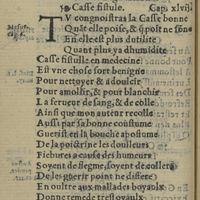 De Casse fistule. Cap. xlvij.
TV congnoistras la Casse bonne
Quãt elle poise, & poĩt ne sõne
En elle est plus dutilité
Quant plus ya dhumidité
Casse fistulle en medecine
Est vne chose fort benigne
Pour nettoyer & adoulcir
Pour amollir, & pour blanchir
La ferueur de sang, & de colle
Ainsi que mon auteur recolle
Aussi par sa bonne coustume
Guerist en la bouche apostume
De la poictrine les doulleurs
Fichures a cause des humeurs
Soyent de flegme, soyent de collera
De les guerir point ne differe
En oultre aux mallades boyaulx
Donne remede tresloyaulx